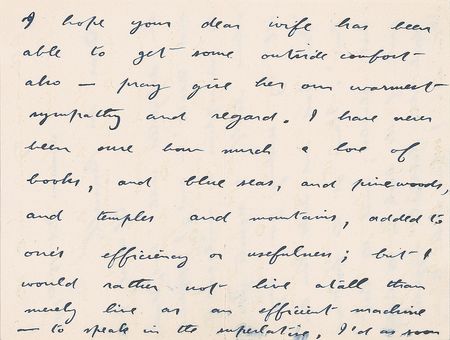 I hope your dear wife has been
able to get some outside comfort
also — pray give her our warmest
sympathy and regard. I have never
been sure how much a love of
books, and blue seas, and pinewoods,
and temples and mountains, added to
one's efficiency or usefulness; but I
would rather not live atall than
merely live as an efficient machine
— to speak in the superlative, I'd as soon